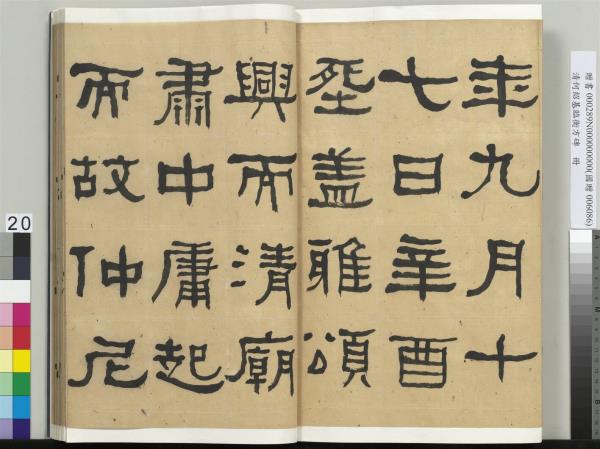 年九月十
七日辛酉
葬盖雅頌
興而清廟
肅中庸起
而故仲尼
贈書 000289N000000000(國贈 006086)
清何紹基臨衡方碑 冊
20
A
M
B